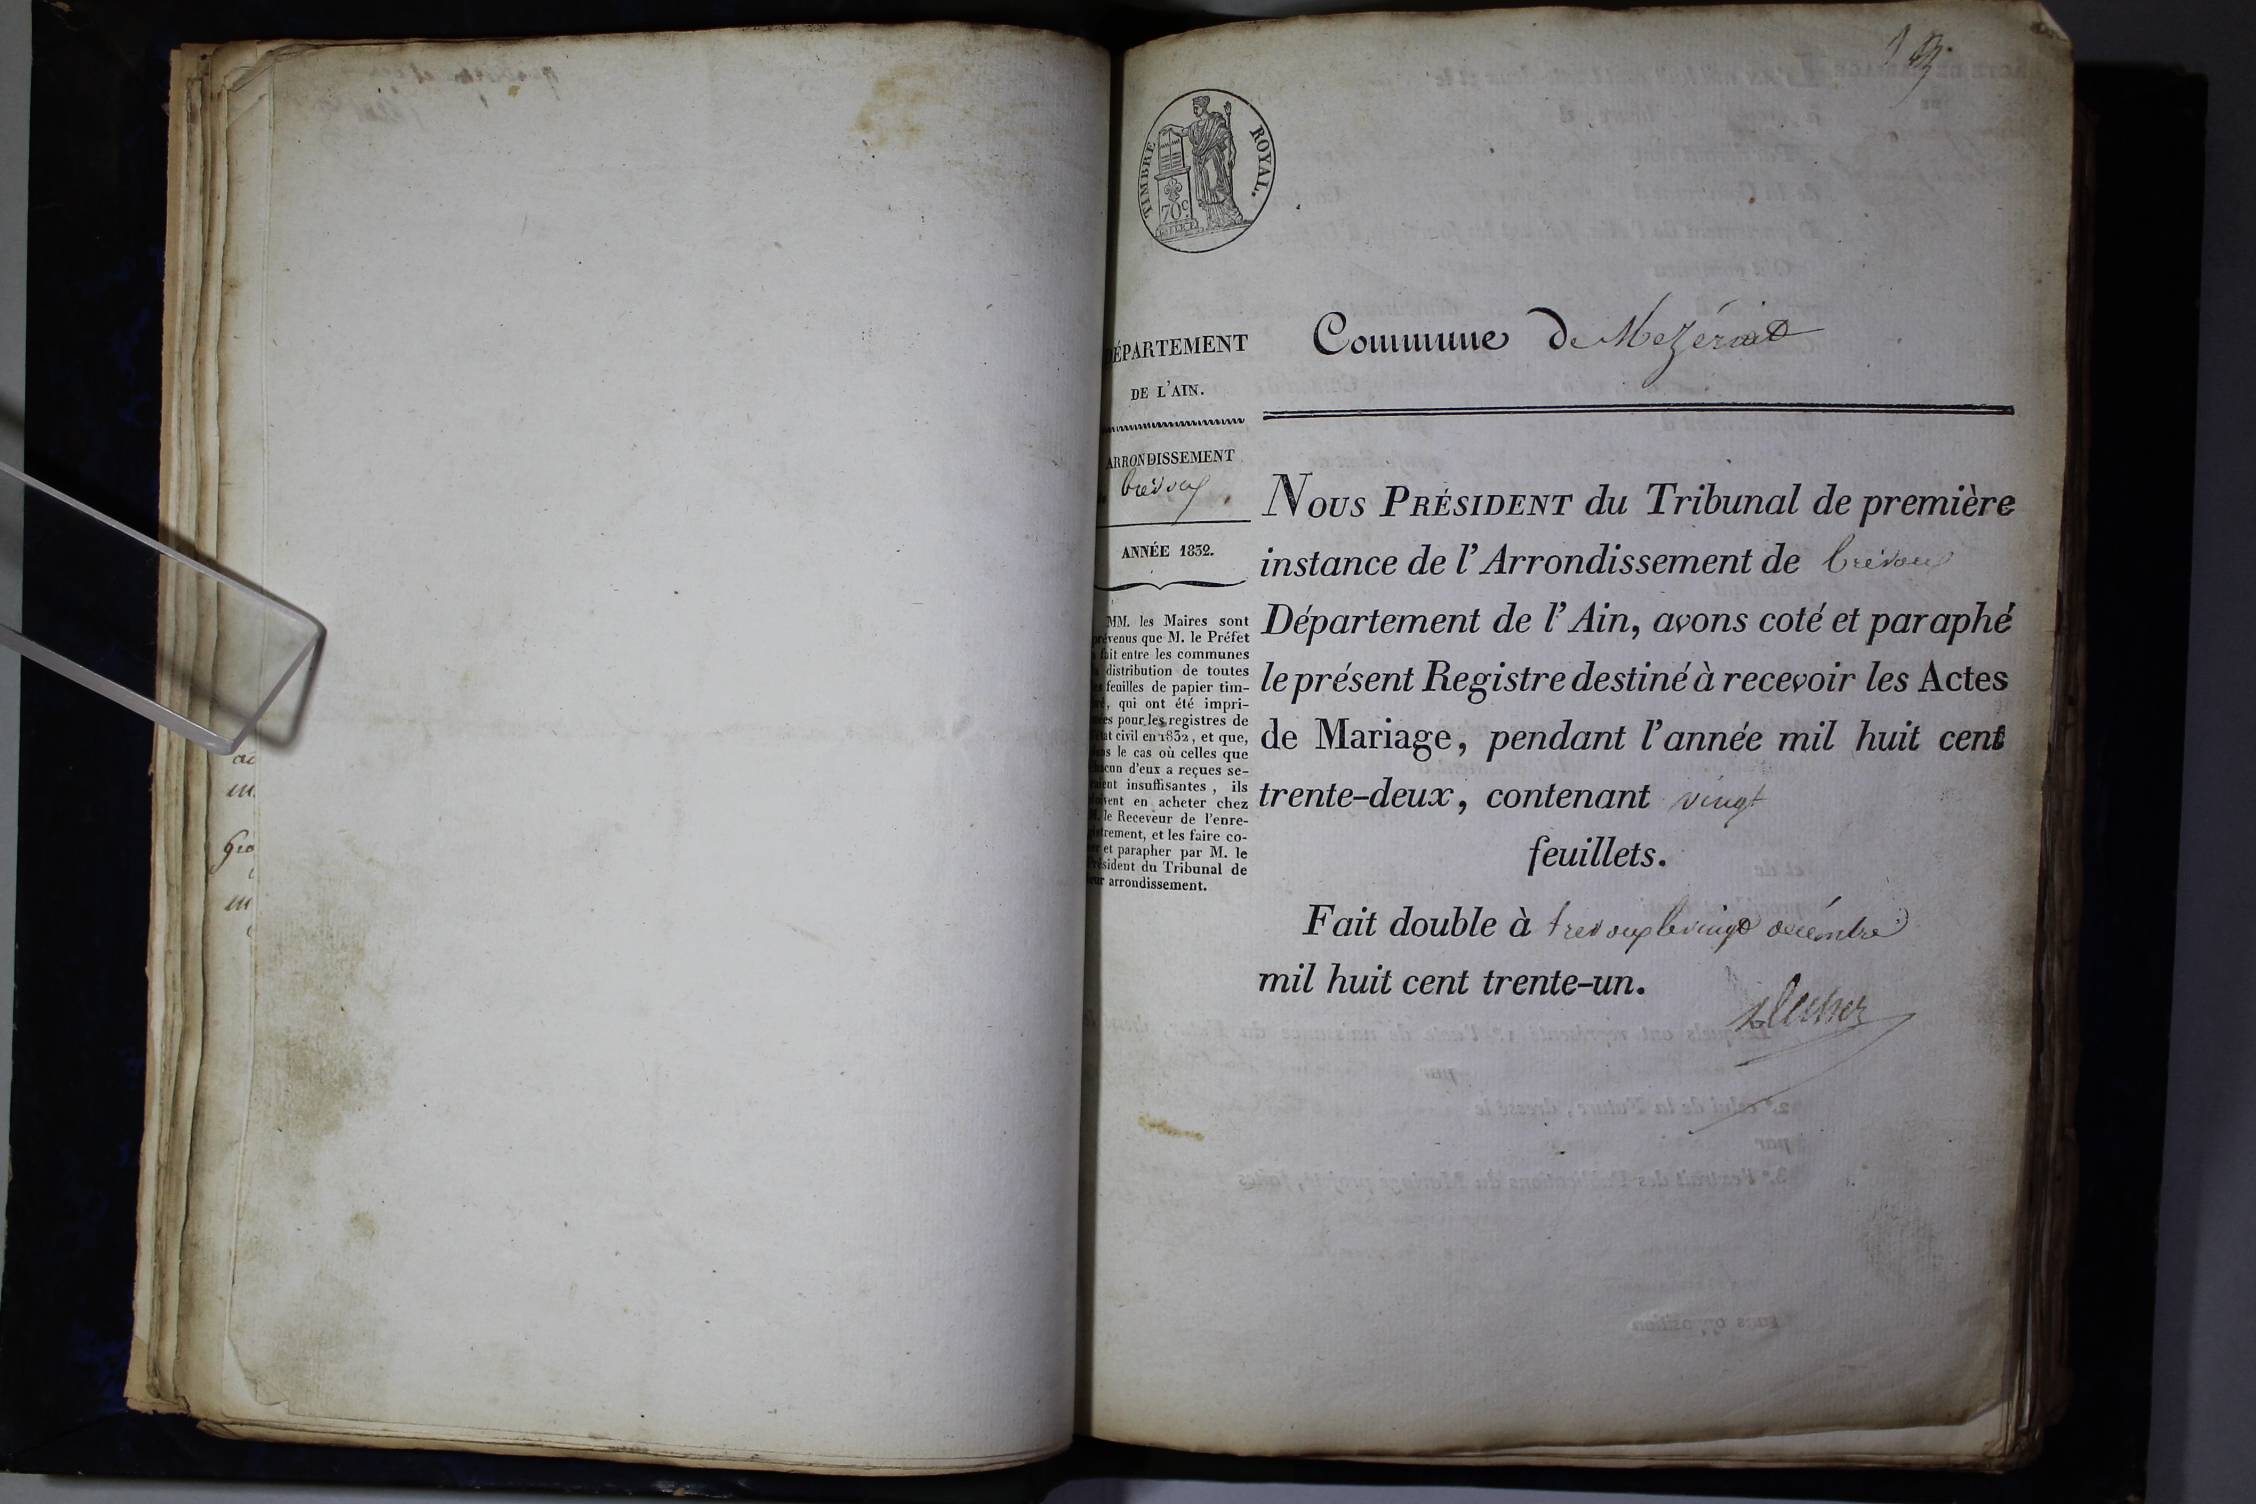 TIMBRE ROYAL.
70c.
Commune de Mezériat
DÉPARTEMENT
DE L'AIN.
ARRONDISSEMENT
trévoux
ANNÉE 1832.
MM. les Maires sont
prévenus que M. le Préfet
fait entre les communes
distribution de toutes
feuilles de papier tim-
, qui ont été impri-
pour les registres de
civil en 1832, et que,
le cas où celles que
d'eux a reçues se-
insuffisantes, ils
en acheter chez
le Receveur de l'enre-
, et les faire co-
et parapher par M. le
Président du Tribunal de
arrondissement.
NOUS PRÉSIDENT du Tribunal de première
instance de l'Arrondissement de trévoux
Département de l'Ain, avons coté et paraphé
le présent Registre destiné à recevoir les Actes
de Mariage, pendant l'année mil huit cent
trente-deux, contenant vingt
feuillets.
Fait double à trevoux le vingt décembre
mil huit cent trente-un.